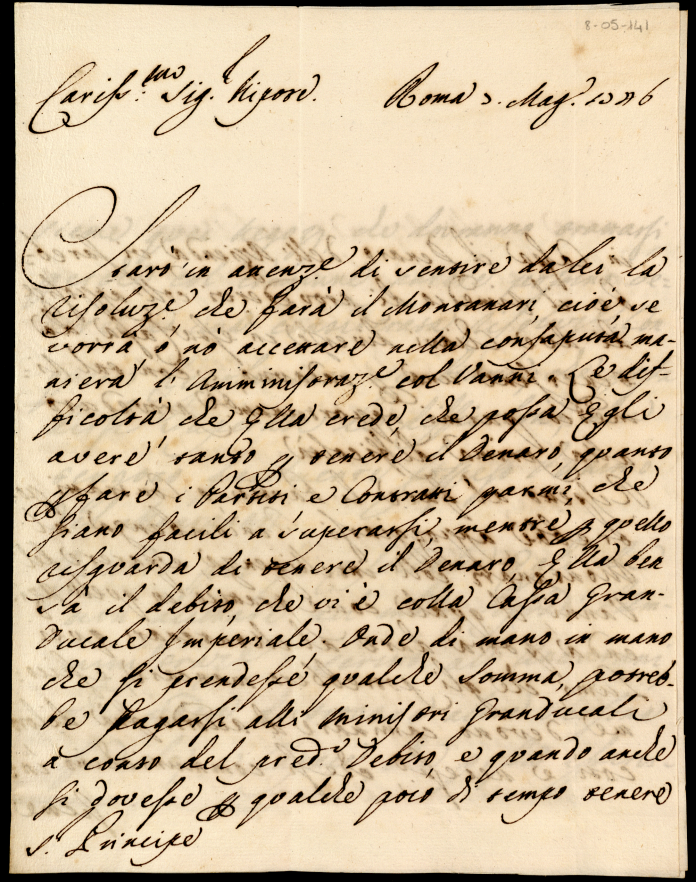 8-05-141
Cariss.mo Sig.r Nipote. Roma 3. Mag.o
Starò in attenz.e di sentire da lei la
risoluz.e che farà il Montanari, cioè, se
vorrà, ò nò accettare nella consaputa ma-
niera l'Amministraz.e col Vanni. Le dif-
ficoltà che Ella crede, che possa Egli
avere tanto p tenere il Denaro, quanto
p fare i Partiti e Contratti parmi, che
siano facili a superarsi, mentre p quello
risguarda di tenere il Denaro, Ella ben
sà il debito, che vi è colla Cassa Gran-
Ducale Imperiale. Onde di mano in mano
che si prendesse qualche somma, potreb-
be pagarsi alli Ministri Granducali
a conto del pred.o Debito, e quando anche
si dovesse p qualche poco di tempo tenere
s. Principe